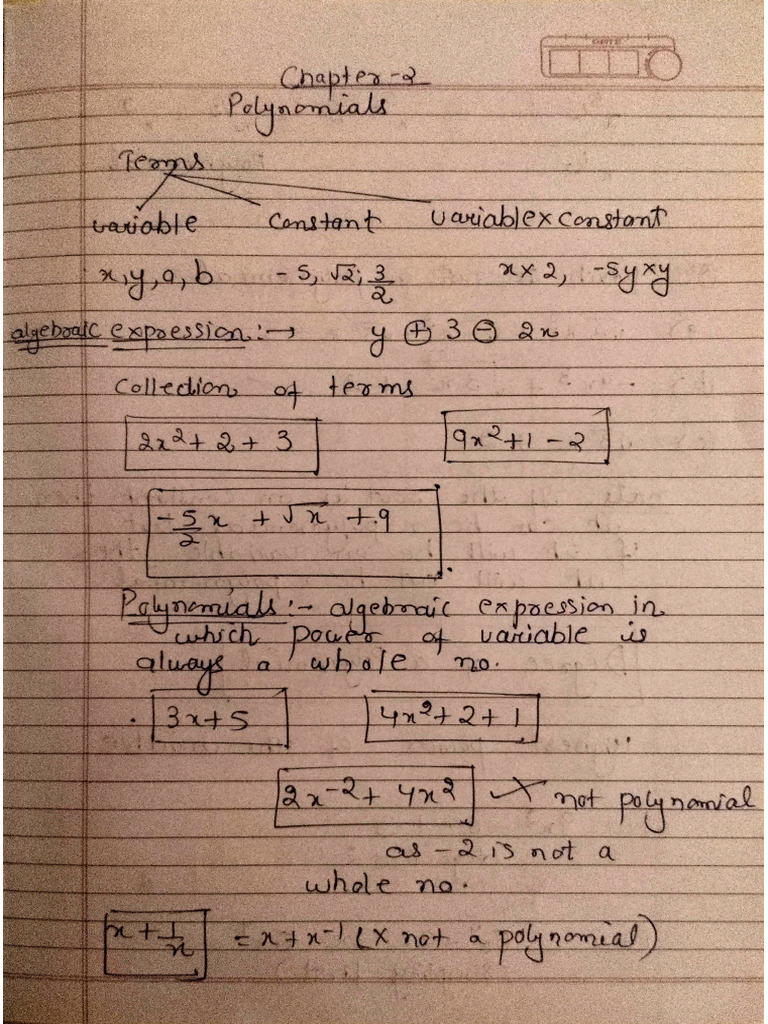 DATE
Chapter-2
Polynomials
Terms
variable constant variable×constant
x, y, a, b -5, √2, 3/2 x×2, -5y×y
algebraic expression:→ y ⊕ 3 ⊖ 2x
Collection of terms
2x²+2+3 9x²+1-2
-5/2 x + √x + 9
Polynomials:- algebraic expression in
which power of variable is
always a whole no.
3x+5 4x²+2+1
2x⁻²+4x² × not polynomial
as -2 is not a
whole no.
x+1/x = x+x⁻¹ (× not a polynomial)